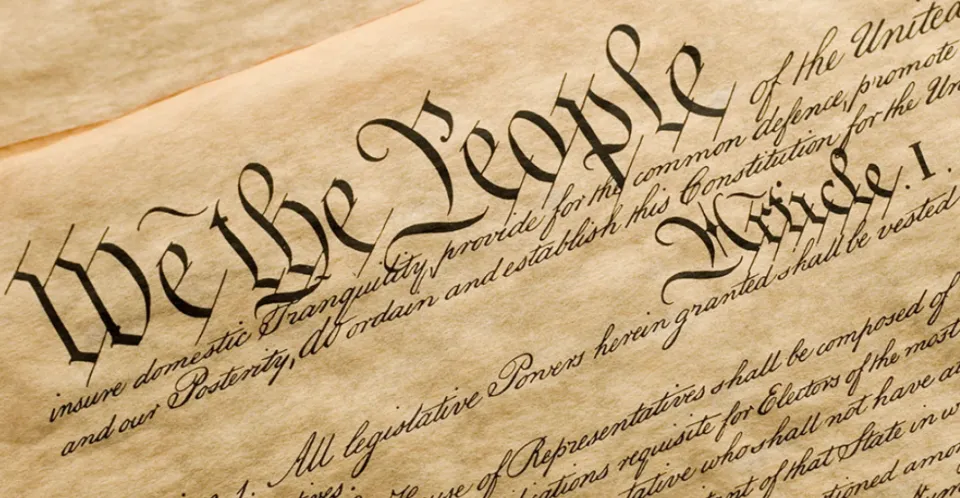 We the People of the United
insure domestic Tranquility, provide for the common defence, promote
and our Posterity, do ordain and establish this Constitution for the Un
Article. I.
1. All legislative Powers herein granted shall be vested
use of Representatives shall be composed of
ications requisite for Electors of the most
tative who shall not have
nt of that State in w